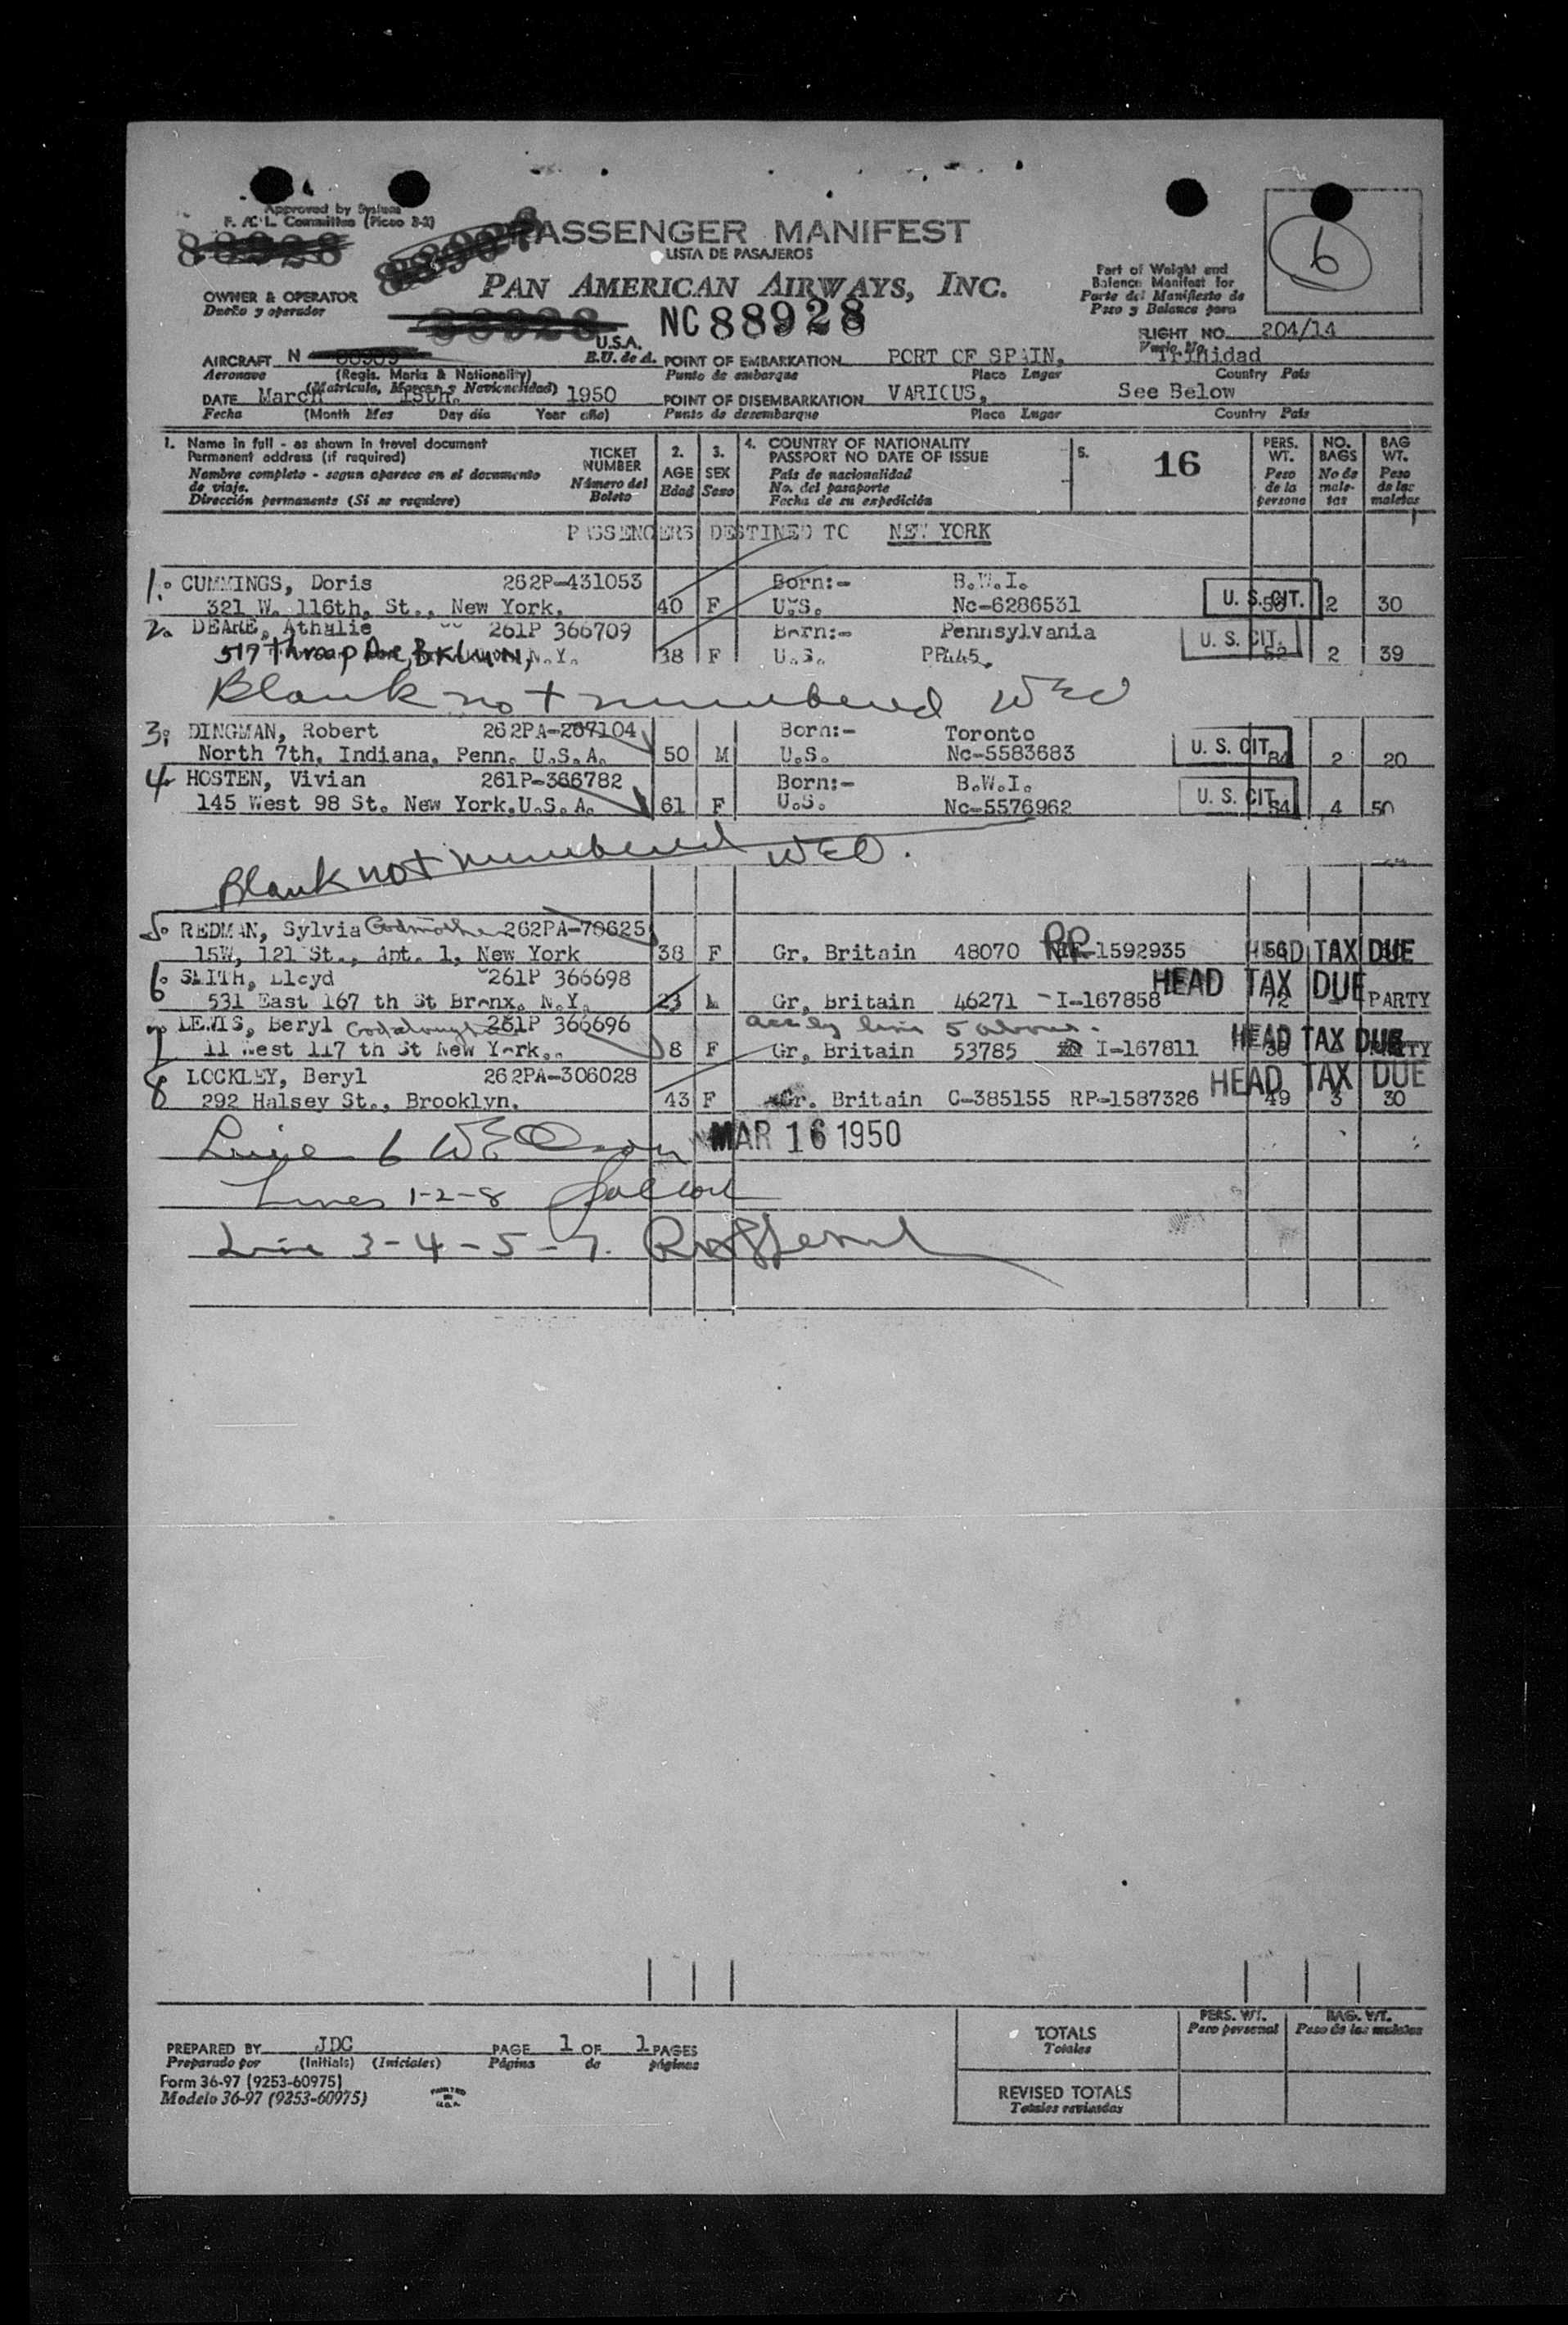 Approved by Systems
F. A. C. L. Committee (Picao 3-2)
88928
PASSENGER MANIFEST
LISTA DE PASAJEROS
6
PAN AMERICAN AIRWAYS, INC.
Part of Weight and
Balance Manifest for
Parte del Manifiesto de
Peso y Balance para
OWNER & OPERATOR
Dueño y operador
88928 NC 88928
FLIGHT NO. 204/14
Vuelo No.
AIRCRAFT N U.S.A. POINT OF EMBARKATION PORT OF SPAIN, Trinidad
Aeronave (Regis. Marks & Nationality) E.U. de A. Punto de embarque Place Lugar Country País
(Matricula, Marcas y Nacionalidad)
DATE March 15th. 1950 POINT OF DISEMBARKATION VARIOUS, See Below
Fecha (Month Mes Day día Year año) Punto de desembarque Place Lugar Country País
1. Name in full - as shown in travel document
Permanent address (if required)
Nombre completo - segun aparece en el documento de viaje.
Dirección permanente (Si se requiere)
TICKET NUMBER
Número del Boleto
2. AGE
Edad
3. SEX
Sexo
4. COUNTRY OF NATIONALITY
PASSPORT NO DATE OF ISSUE
País de nacionalidad
No. del pasaporte
Fecha de su expedición
5. 16
PERS. WT.
Peso de la persona
NO. BAGS
No de maletas
BAG WT.
Peso de las maletas
PASSENGERS DESTINED TO NEW YORK
1. CUMMINGS, Doris 262P-431053 Born:- B.W.I.
321 W. 116th. St., New York. 40 F U.S. Nc-6286531 U. S. CIT. 2 30
2. DEARE, Athalie 261P 366709 Born:- Pennsylvania
517 Throop Ave, BKLWN, N.Y. 38 F U.S. PP445. U. S. CIT. 52 2 39
Blank not numbered WEO
3. DINGMAN, Robert 262PA-267104 Born:- Toronto
North 7th, Indiana, Penn. U.S.A. 50 M U.S. Nc-5583683 U. S. CIT. 84 2 20
4 HOSTEN, Vivian 261P-366782 Born:- B.W.I.
145 West 98 St. New York. U.S.A. 61 F U.S. Nc-5576962 U. S. CIT. 54 4 50
Blank not numbered WEO.
5. REDMAN, Sylvia Godmother 262PA-70625
15W, 121 St., Apt. 1, New York 38 F Gr. Britain 48070 RP-1592935 56 HEAD TAX DUE
6. SMITH, Lloyd 261P 366698
531 East 167 th St Bronx, N.Y. 23 M Gr, Britain 46271 - I-167858 HEAD TAX DUE 72 PARTY
7 LEWIS, Beryl Goddaughter 261P 366696 accby line 5 above.
11 West 117 th St New York. 8 F Gr, Britain 53785 I-167811 HEAD TAX DUE PARTY
8 LOCKLEY, Beryl 262PA-306028
292 Halsey St., Brooklyn. 43 F Gr. Britain C-385155 RP-1587326 HEAD TAX DUE 49 3 30
Line 6 MAR 16 1950
Lines 1-2-8
Line 3-4-5-7.
PREPARED BY JDC PAGE 1 OF 1 PAGES
Preparado por (Initials) (Iniciales) Página de páginas
Form 36-97 (9253-60975)
Modelo 36-97 (9253-60975)
PRINTED IN U.S.A.
PERS. WT.
Peso personal
BAG. WT.
Peso de las maletas
TOTALS
Totales
REVISED TOTALS
Totales revisadas